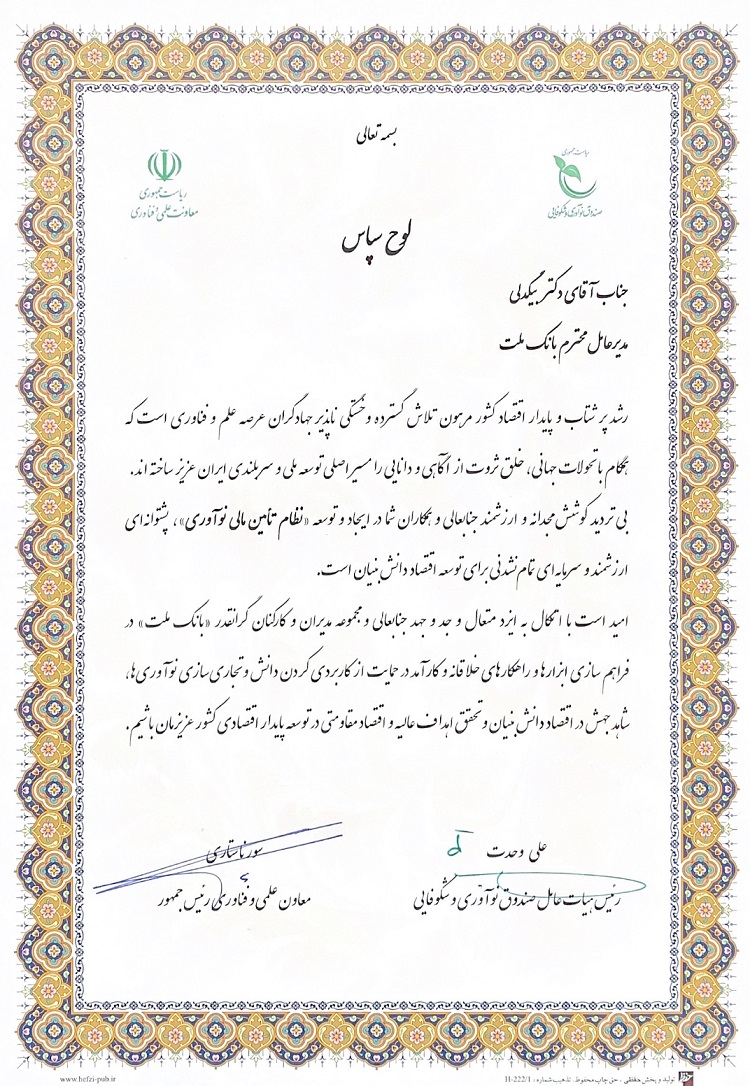 بسمه تعالی
ریاست جمهوری
صندوق نوآوری و شکوفایی
ریاست جمهوری
معاونت علمی و فناوری
لوح سپاس
جناب آقای دکتر بیگدلی
مدیرعامل محترم بانک ملت
رشد پر شتاب و پایدار اقتصاد کشور مرهون تلاش گسترده و خستگی ناپذیر جهادگران عرصه علم و فناوری است که
همگام با تحولات جهانی، خلق ثروت از آگاهی و دانایی را مسیر اصلی توسعه ملی و سربلندی ایران عزیز ساخته اند.
بی تردید کوشش مجدانه و ارزشمند جنابعالی و همکاران شما در ایجاد و توسعه «نظام تأمین مالی نوآوری»، پشتوانه ای
ارزشمند و سرمایه ای تمام نشدنی برای توسعه اقتصاد دانش بنیان است.
امید است با اتکال به ایزد متعال و جد و جهد جنابعالی و مجموعه مدیران و کارکنان گرانقدر «بانک ملت» در
فراهم سازی ابزارها و راهکارهای خلاقانه و کارآمد در حمایت از کاربردی کردن دانش و تجاری سازی نوآوری ها،
شاهد جهش در اقتصاد دانش بنیان و تحقق اهداف عالیه و اقتصاد مقاومتی در توسعه پایدار اقتصادی کشور عزیزمان باشیم.
علی وحدت
رئیس هیات عامل صندوق نوآوری و شکوفایی
سورنا ستاری
معاون علمی و فناوری رئیس جمهور
تولید و پخش حفظی - حق چاپ محفوظ. تذهیب شماره: H-222/1
www.hefzi-pub.ir